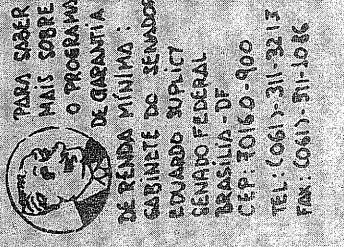 PARA SABER
MAIS SOBRE
O PROGRAMA
DE GARANTIA
DE RENDA MÍNIMA:
GABINETE DO SENADOR
EDUARDO SUPLICY
SENADO FEDERAL
BRASÍLIA-DF
CEP: 70160-900
TEL: (061)-311-3213
FAX: (061)-311-